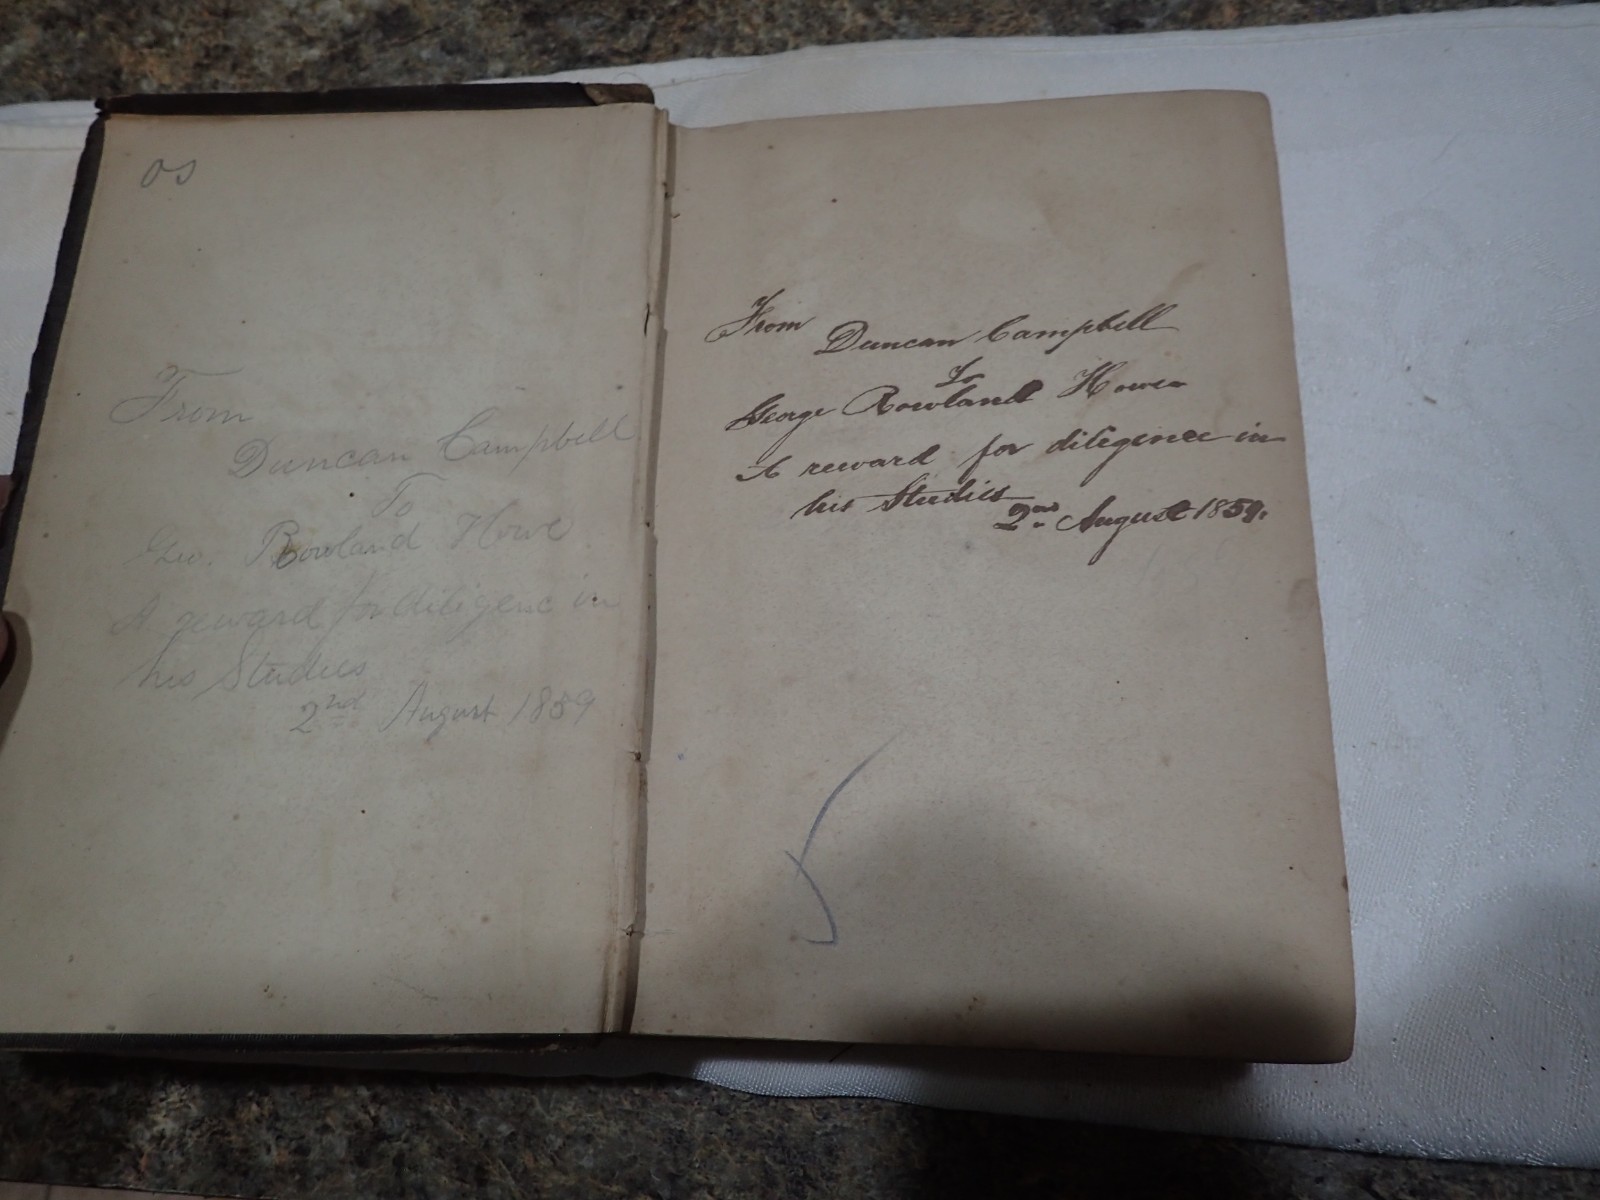 os
From
Duncan Campbell
To
Geo. Rowland Howe
A reward for diligenc in
his Studies
2nd August 1859
From
Duncan Campbell
To
George Rowland Howe
A reward for diligence in
his Studies
2nd August 1859.